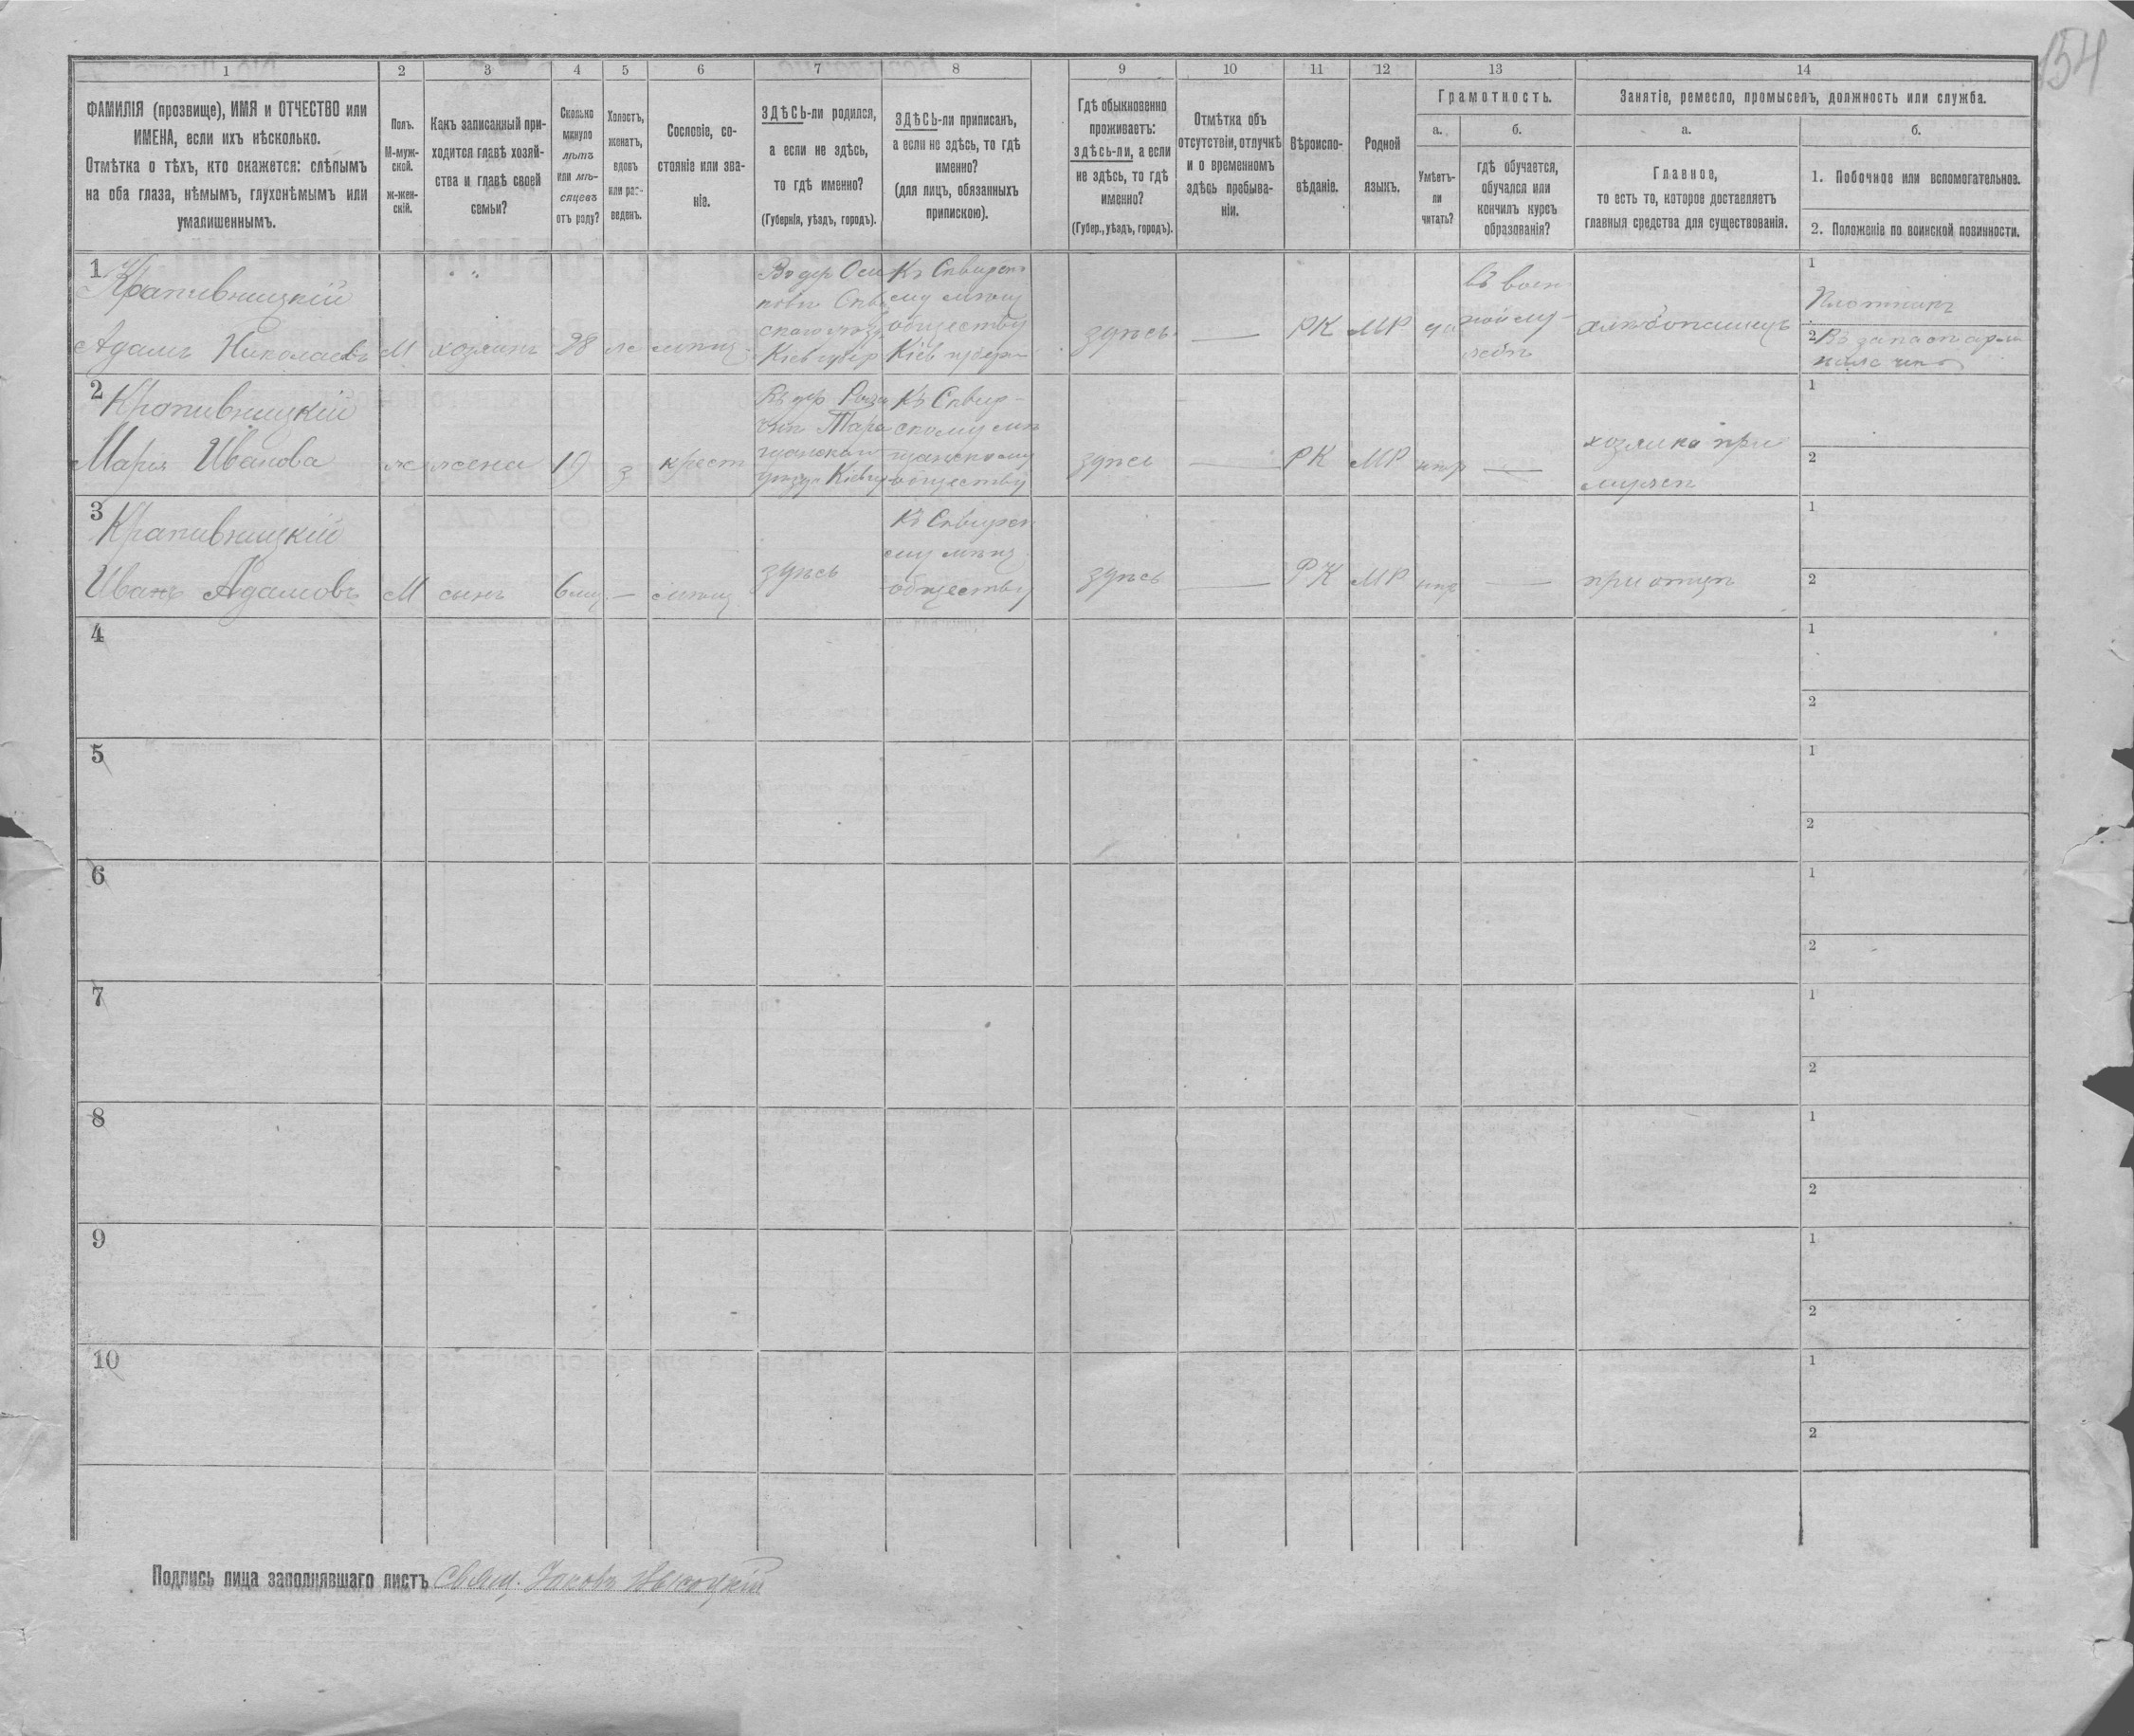 154
1 2 3 4 5 6 7 8 9 10 11 12 13 14
ФАМИЛІЯ (прозвище), ИМЯ и ОТЧЕСТВО или
ИМЕНА, если ихъ нѣсколько.
Отмѣтка о тѣхъ, кто окажется: слѣпымъ
на оба глаза, нѣмымъ, глухонѣмымъ или
умалишеннымъ.
Полъ.
М-муж-
ской.
Ж-жен-
скій.
Какъ записанный при-
ходится главѣ хозяй-
ства и главѣ своей
семьи?
Сколько
минуло
лѣтъ
или мѣ-
сяцевъ
отъ роду?
Холостъ,
женатъ,
вдовъ
или раз-
веденъ.
Сословіе, со-
стояніе или зва-
ніе.
ЗДѢСЬ-ли родился,
а если не здѣсь,
то гдѣ именно?
(Губернія, уѣздъ, городъ).
ЗДѢСЬ-ли приписанъ,
а если не здѣсь, то гдѣ
именно?
(для лицъ, обязанныхъ
припискою).
Гдѣ обыкновенно
проживаетъ:
здѣсь-ли, а если
не здѣсь, то гдѣ
именно?
(Губер., уѣздъ, городъ).
Отмѣтка объ
отсутствіи, отлучкѣ
и о временномъ
здѣсь пребыва-
ніи.
Вѣроиспо-
вѣданіе.
Родной
языкъ.
Грамотность.
а.
Умѣетъ-
ли
читать?
б.
гдѣ обучается,
обучался или
кончилъ курсъ
образованія?
Занятіе, ремесло, промыселъ, должность или служба.
а.
Главное,
то есть то, которое доставляетъ
главныя средства для существованія.
б.
1. Побочное или вспомогательное.
2. Положеніе по воинской повинности.
1
Крапивницкій
Адамъ Николаевъ
М
хозяинъ
28
ж
мѣщ
Въ дер
Кіев губер
Къ Сквирско
му мѣщ
обществу
Кіев губерн
здѣсь
—
РК
МР
да
въ воен
ной слу-
жбѣ
хлѣбопашецъ
1
Плотникъ
2 Въ запасѣ арміи
2
Крапивницкій
Марія Иванова
ж
жена
19
з
крест
Въ дер
Тара
щанскаго
уѣзда Кіев
Къ Сквир-
скому мѣ
щанскому
обществу
здѣсь
—
РК
МР
—
хозяйка при
мужѣ
1
2
3
Крапивницкій
Иванъ Адамовъ
М
сынъ
6 мц
—
мѣщ
здѣсь
Къ Сквирск
му мѣщ
обществу
здѣсь
—
РК
МР
—
при отцѣ
1
2
4
1
2
5
1
2
6
1
2
7
1
2
8
1
2
9
1
2
10
1
2
Подпись лица заполнявшаго листъ Свящ. Іаковъ Высоцкій